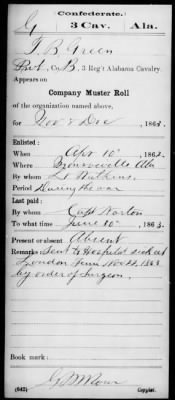 Confederate.
G 3 Cav. Ala.
T. B. Green
Pvt, Co. B, 3 Reg't Alabama Cavalry.
Appears on
Company Muster Roll
of the organization named above,
for Nov & Dec, 1863.
Enlisted:
When Apr 10, 1862.
Where Ala
By whom Lt Watkins
Period During the war
Last paid:
By whom Capt Norton
To what time June 30, 1863.
Present or absent Absent
Remarks: Sent to Hospital sick at
Loudon Tenn Nov 22, 1863
by order of Surgeon.
Book mark:
(642) Copyist.